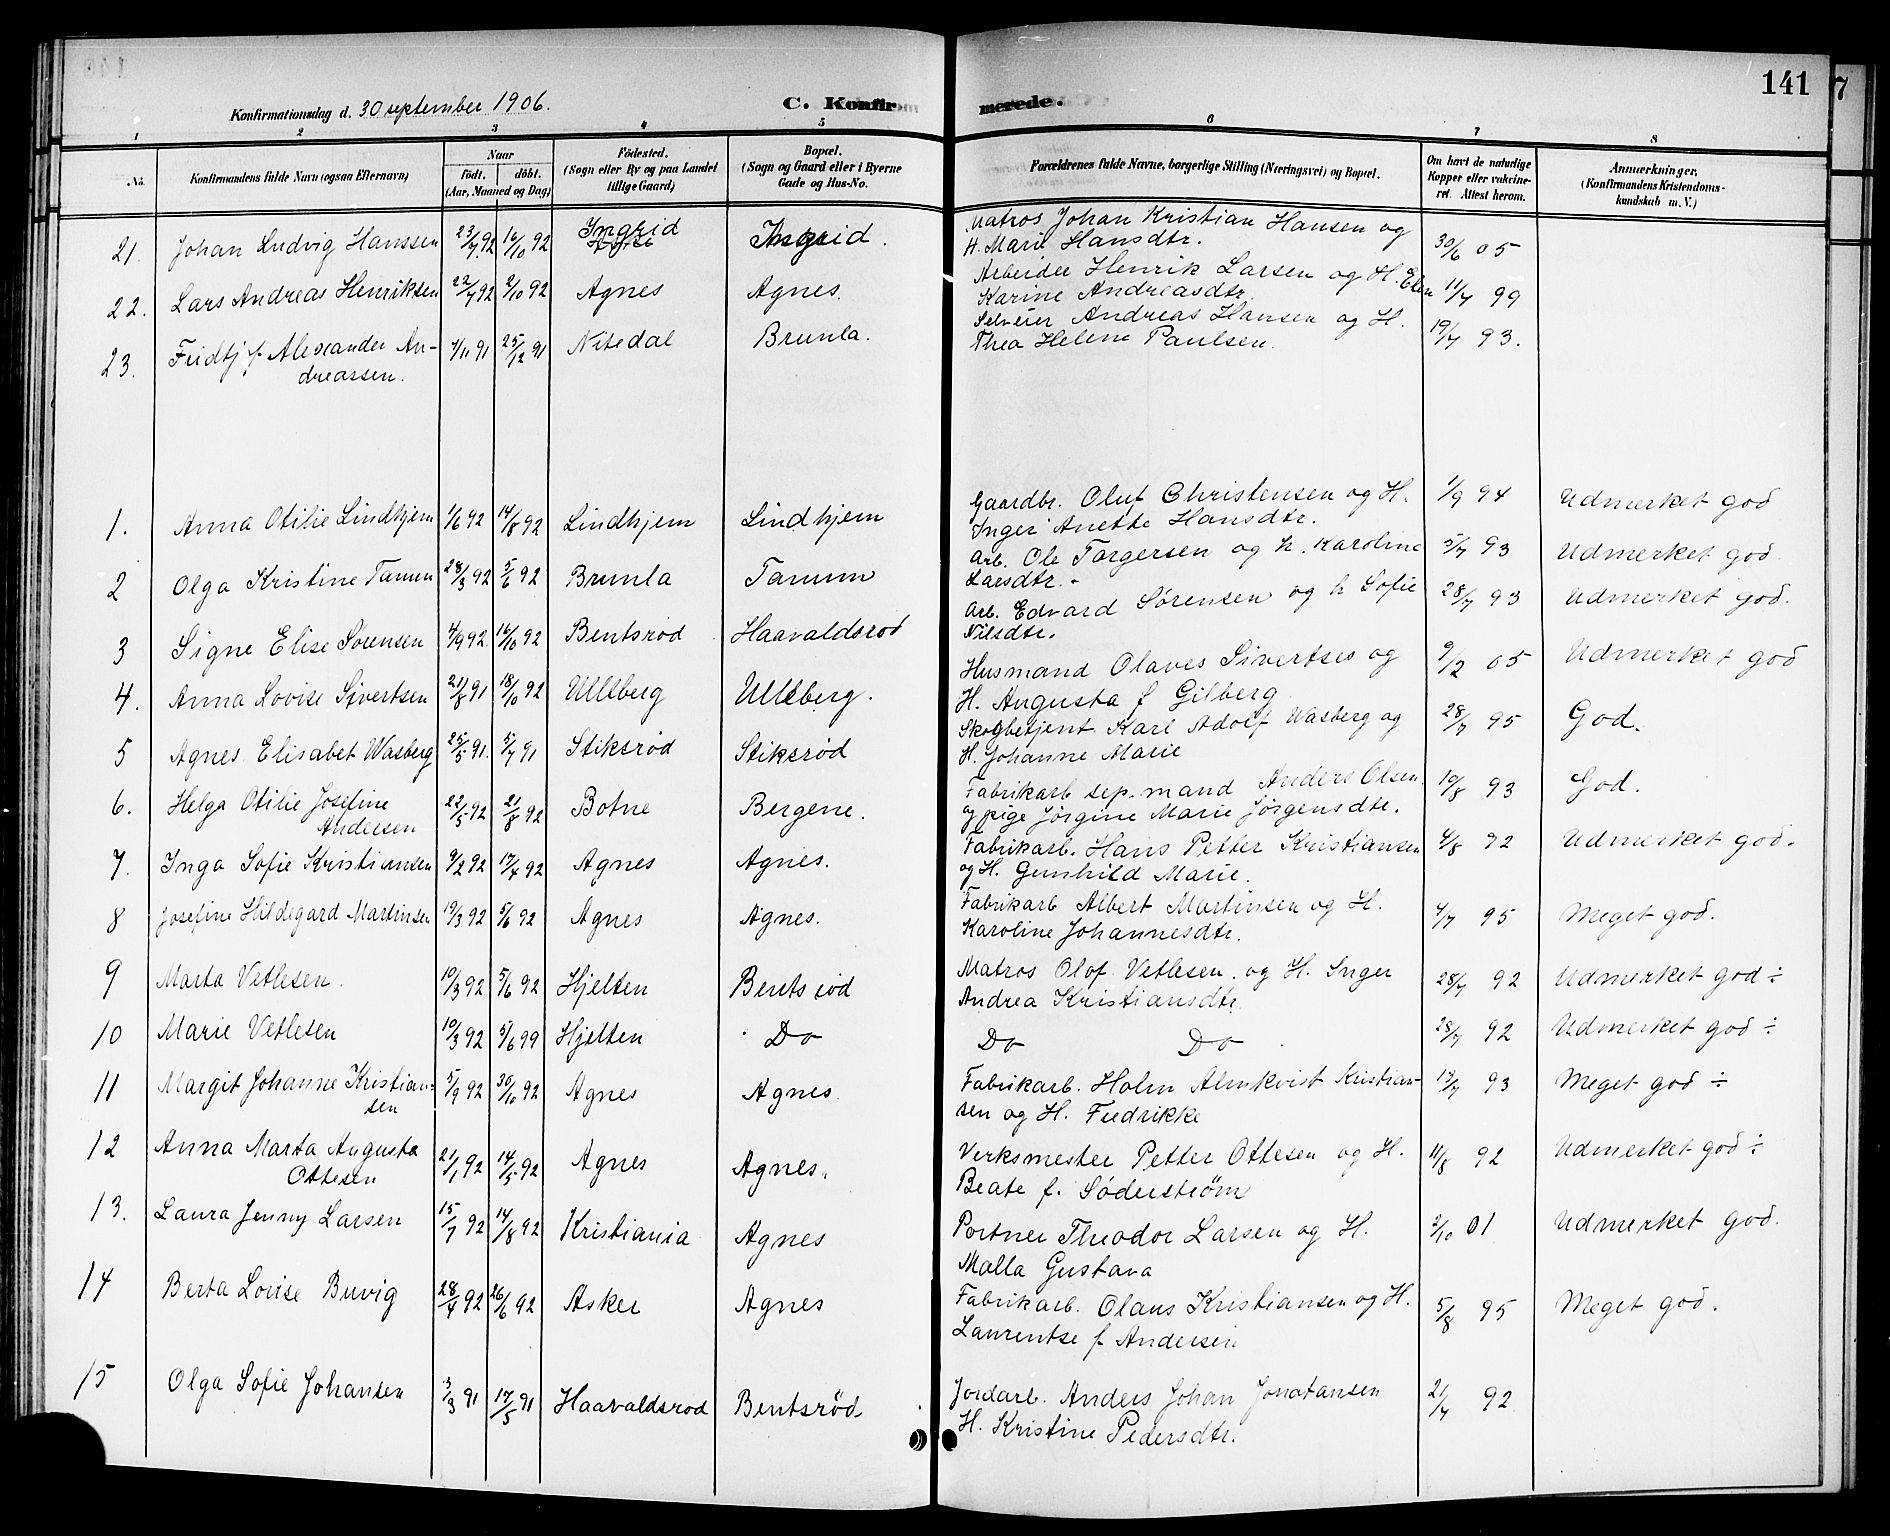 141
7
Konfirmationsdag d. 30 september 1906.
C. Konfir merede.
1 2 3 4 5 6 7 8
No. Konfirmandens fulde Navn (ogsaa Efternavn) Naar födt. döbt. (Aar, Maaned og Dag) Födested. (Sogn eller By og paa Landet tillige Gaard) Bopæl. (Sogn og Gaard eller i Byerne Gade og Hus-No. Forældrenes fulde Navne, borgerlige Stilling (Næringsvei) og Bopæl. Om havt de naturlige Kopper eller vakcineret. Attest herom. Anmærkninger. (Konfirmandens Kristendomskundskab m. V.)
21. Johan Ludvig Hanssen 23/7 92 16/10 92 Ingrid Ingrid. Matros Johan Kristian Hansen og 30/6 05
H. Marie Hansdtr.
22. Lars Andreas Henriksen 22/7 92 2/10 92 Agnes Agnes. Arbeider Henrik Larsen og H. Elen 11/7 99
Karine Andreasdtr
23. Fridtj f Alexander An- 7/11 91 25/12 91 Nitedal Brunla. Selveier Andreas Hansen og H. 19/7 93.
dreassen. Thea Helene Paulsen.
1. Anna Otilie Lindhjem 1/6 92 14/8 92 Lindhjem Lindhjem Gaardbr. Oluf Christensen og H. 1/9 94 Udmerket god
Inger Anette Hansdtr.
2 Olga Kristine Tanum 28/3 92 5/6 92 Brunla Tanum Arb. Ole Torgersen og h. Karoline 5/7 93 Udmerket god.
Larsdtr.
3 Signe Elise Sørensen 4/9 92 16/10 92 Bentsrød Haavaldsrød Arb. Edvard Sørensen og h Sofie 28/7 93 Udmerket god.
Nilsdtr.
4. Anna Lovise Sivertsen 21/8 91 18/10 92 Ullsberg Ullsberg. Husmand Olaves Sivertses og 9/2 05 Udmerket god
H. Augusta f Gilberg
5 Agnes Elisabet Wasberg 25/5 91. 5/7 91 Stiksrød Stiksrød Skogbetjent Karl Adolf Wasberg og 28/7 95 God.
H. Johanne Marie
6. Helga Otilie Josefine 22/5 92 21/8 92 Botne Bergene. Fabrikarb sep. mand Anders Olsen 10/8 93 God.
Andersen og pige Jørgine Marie Jørgensdtr.
7. Inga Sofie Kristiansen 9/2 92 17/4 92 Agnes Agnes. Fabrikarb. Hans Petter Kristiansen 4/8 92 Udmerket god.
og H. Gunhild Marie.
8 Josefine Hildegard Martinsen 19/3 92 5/6 92 Agnes Agnes. Fabrikarb Albert Martinsen og H. 4/7 95 Meget god.
Karoline Johannesdtr.
9 Marta Vetlesen. 10/3 92 5/6 92 Hjelten Bentsrød Matros Olof Vetlesen og H. Inger 28/7 92 Udmerket god ÷
Andrea Kristiansdtr.
10 Marie Vetlesen 10/3 92 5/6 99 Hjelten Do Do Do 28/7 92 Udmerket god ÷
11 Margit Johanne Kristian- 5/9 92 30/10 92 Agnes Agnes Fabrikarb. Holm Almkvist Kristian- 17/7 93 Meget god ÷
sen sen og H. Fredrikke
12 Anna Marta Augusta 21/1 92 14/5 92 Agnes Agnes. Verksmester Petter Ottesen og H. 11/8 92 Udmerket god ÷
Ottesen Beate f. Söderstrøm
13. Laura Jenny Larsen 15/7 92 14/8 92 Kristiania Agnes Portner Theodor Larsen og H. 2/10 01 Udmerket god.
Malla Gustava
14 Berta Louise Buvig 28/4 92 26/6 92 Asker Agnes Fabrikarb. Olaus Kristiansen og H. 5/8 95 Meget god.
Laurentse f. Andersen
15 Olga Sofie Johansen 3/3 91 17/5 91 Haavaldsrød Bentsrød Jordarb. Anders Johan Jonatansen 21/7 92
H. Kristine Pedersdtr.